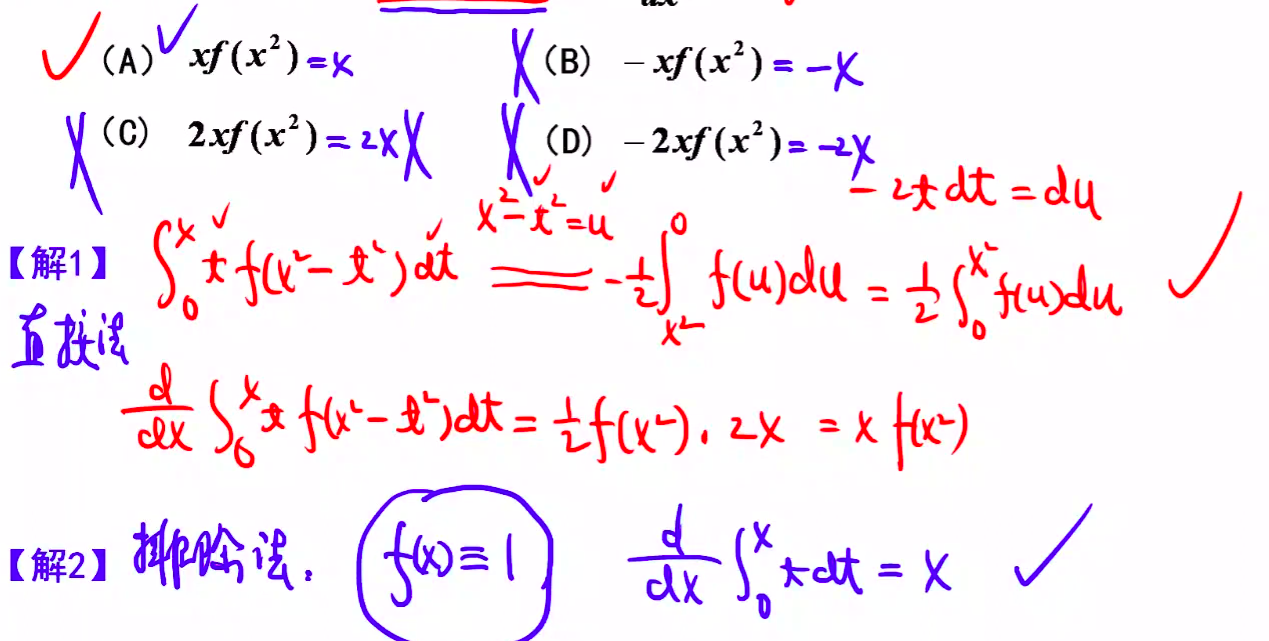 dx
(A) xf(x²) = x (B) −xf(x²) = −x
(C) 2xf(x²) = 2x (D) −2xf(x²) = −2x
−2t dt = du
【解1】 ∫₀ˣ t f(x²−t²) dt x²−t²=u −½ ∫_{x²}^{0} f(u)du = ½ ∫₀^{x²} f(u)du
直接法
d/dx ∫₀ˣ t f(x²−t²)dt = ½ f(x²)·2x = x f(x²)
【解2】 排除法: f(x)≡1 d/dx ∫₀ˣ t dt = x